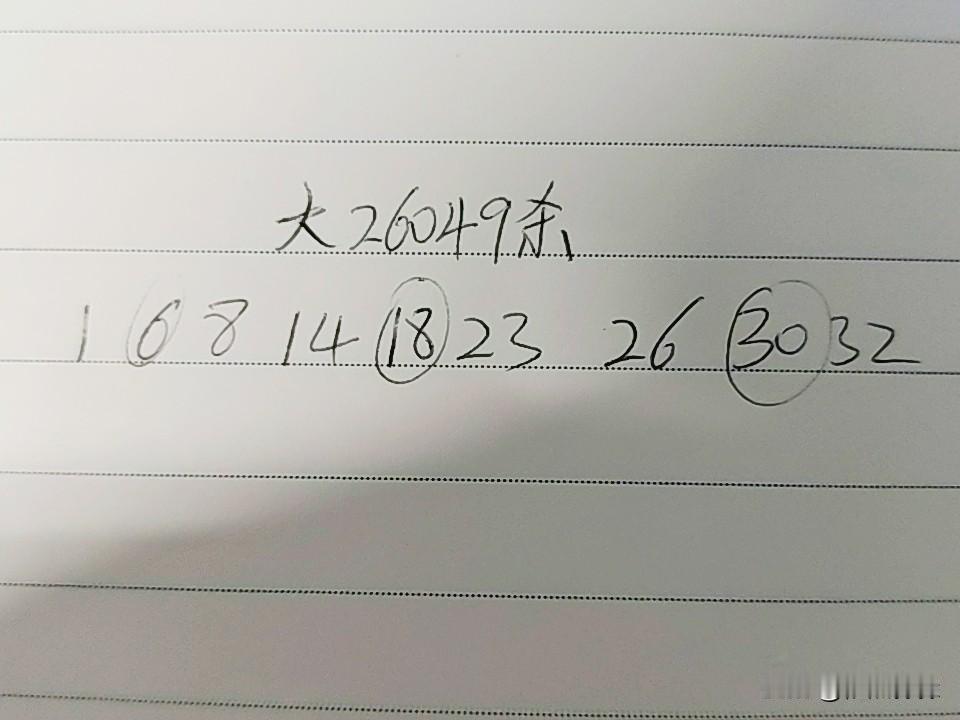 大26049杀
1 6 8 14 18 23 26 30 32